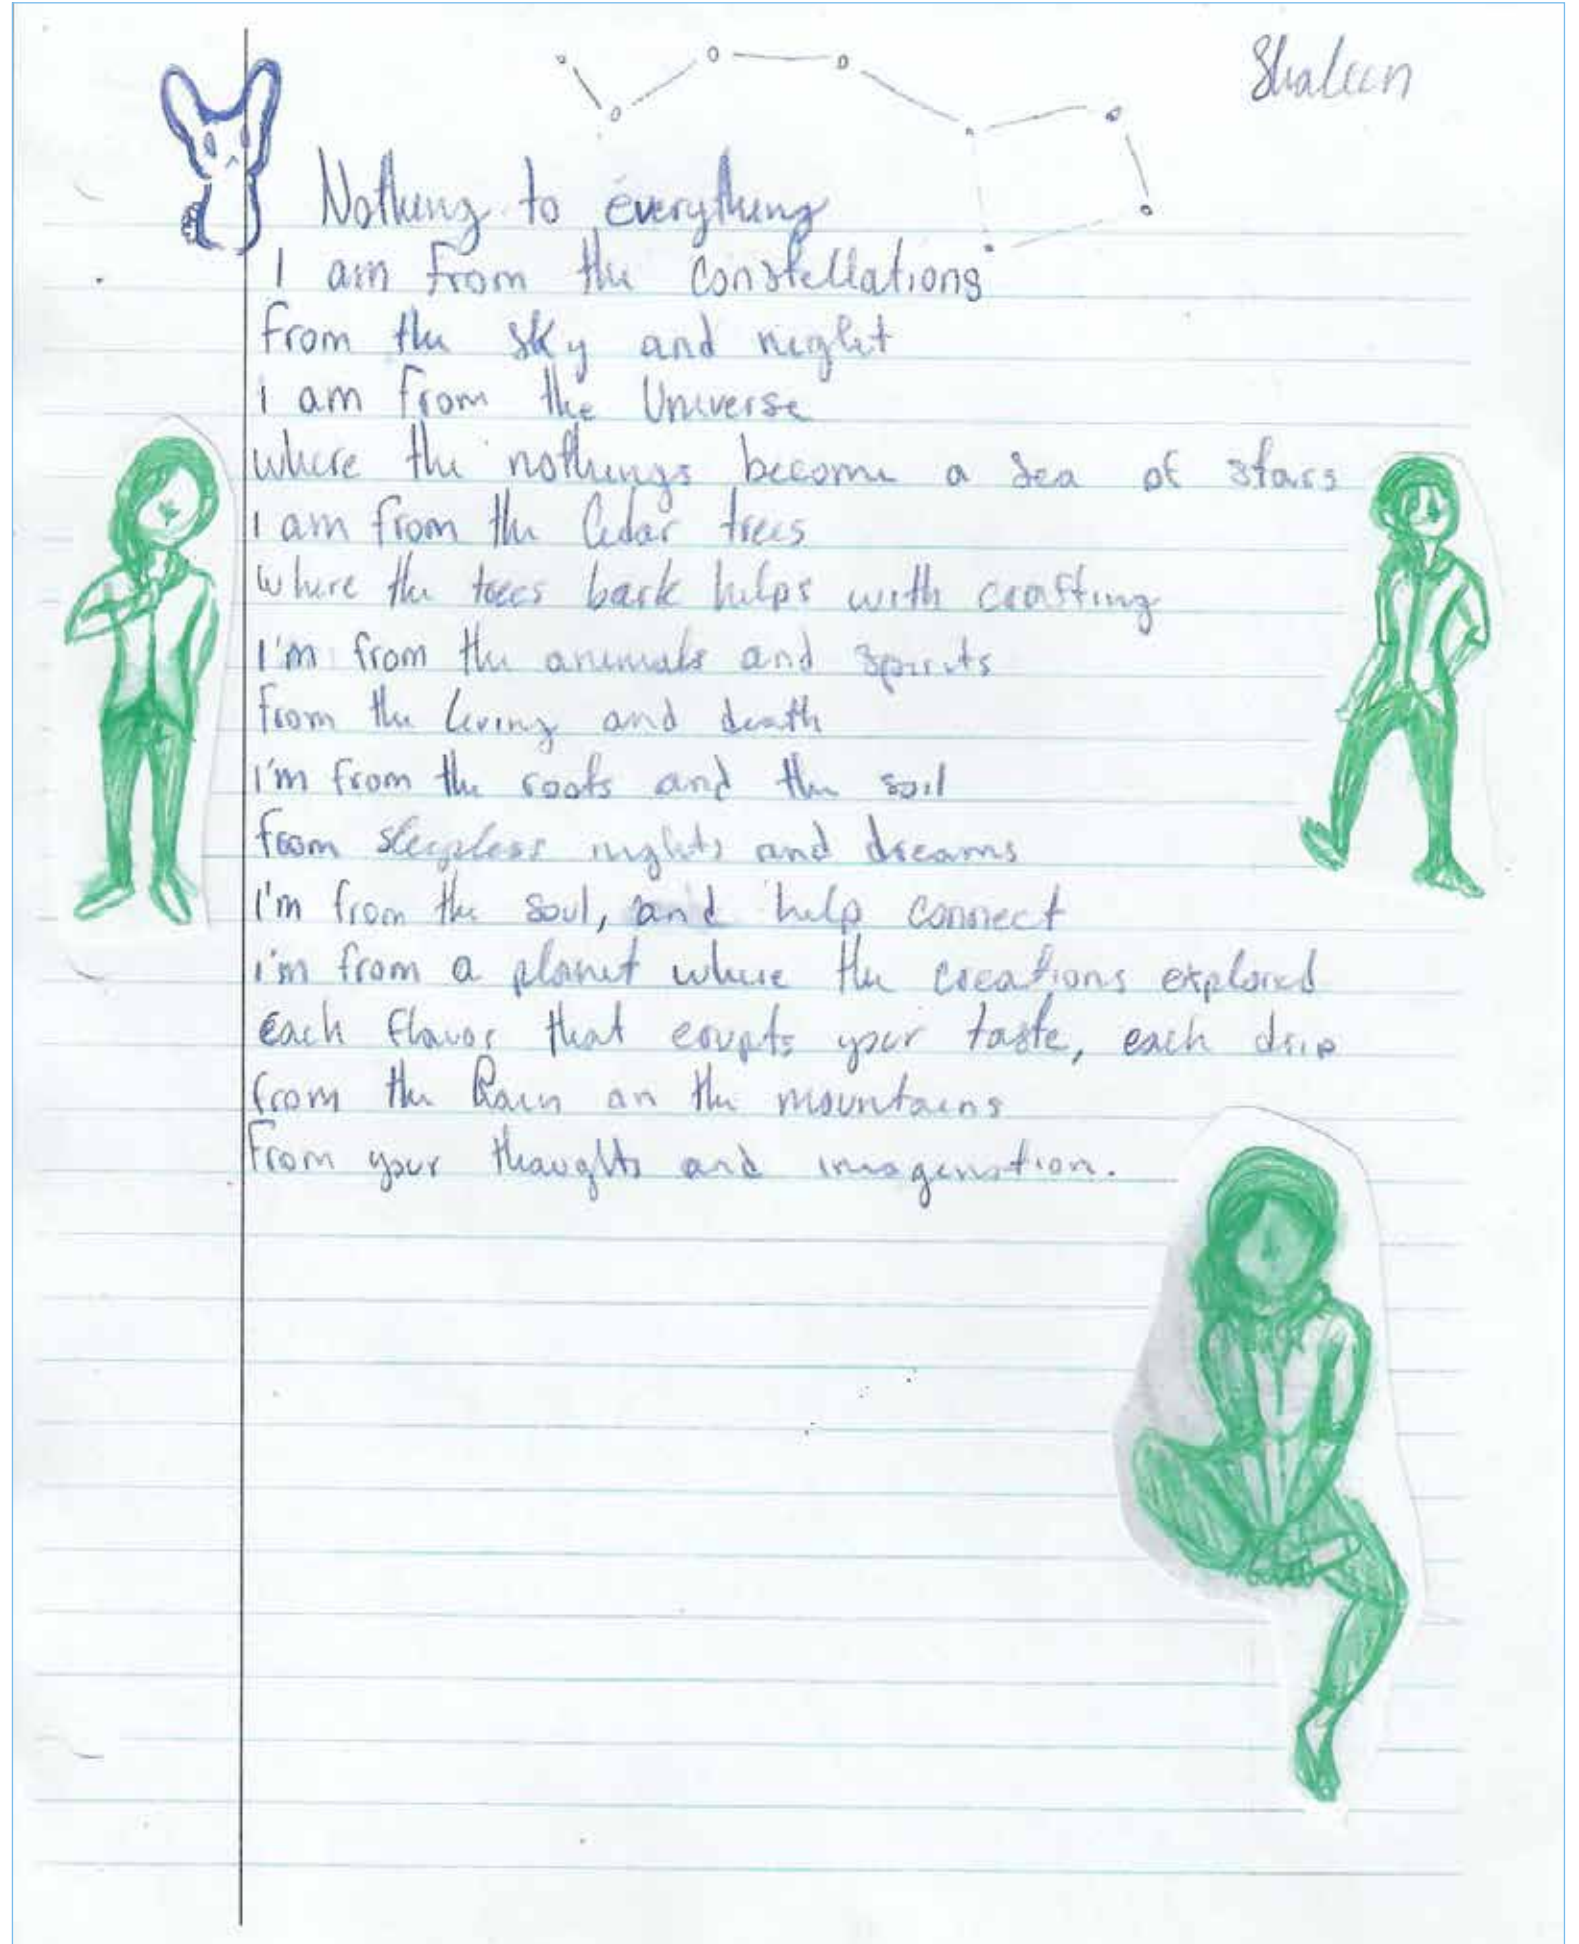 Shaleen
Nothing to everything
I am from the constellations
from the sky and night
I am from the Universe
where the nothings become a sea of stars
I am from the Cedar trees
where the trees bark helps with crafting
I'm from the animals and spirits
from the living and death
I'm from the roots and the soil
from sleepless nights and dreams
I'm from the soul, and help connect
i'm from a planet where the creations explored
each flavor that erupts your taste, each drip
from the Rain on the mountains
From your thoughts and imagination.